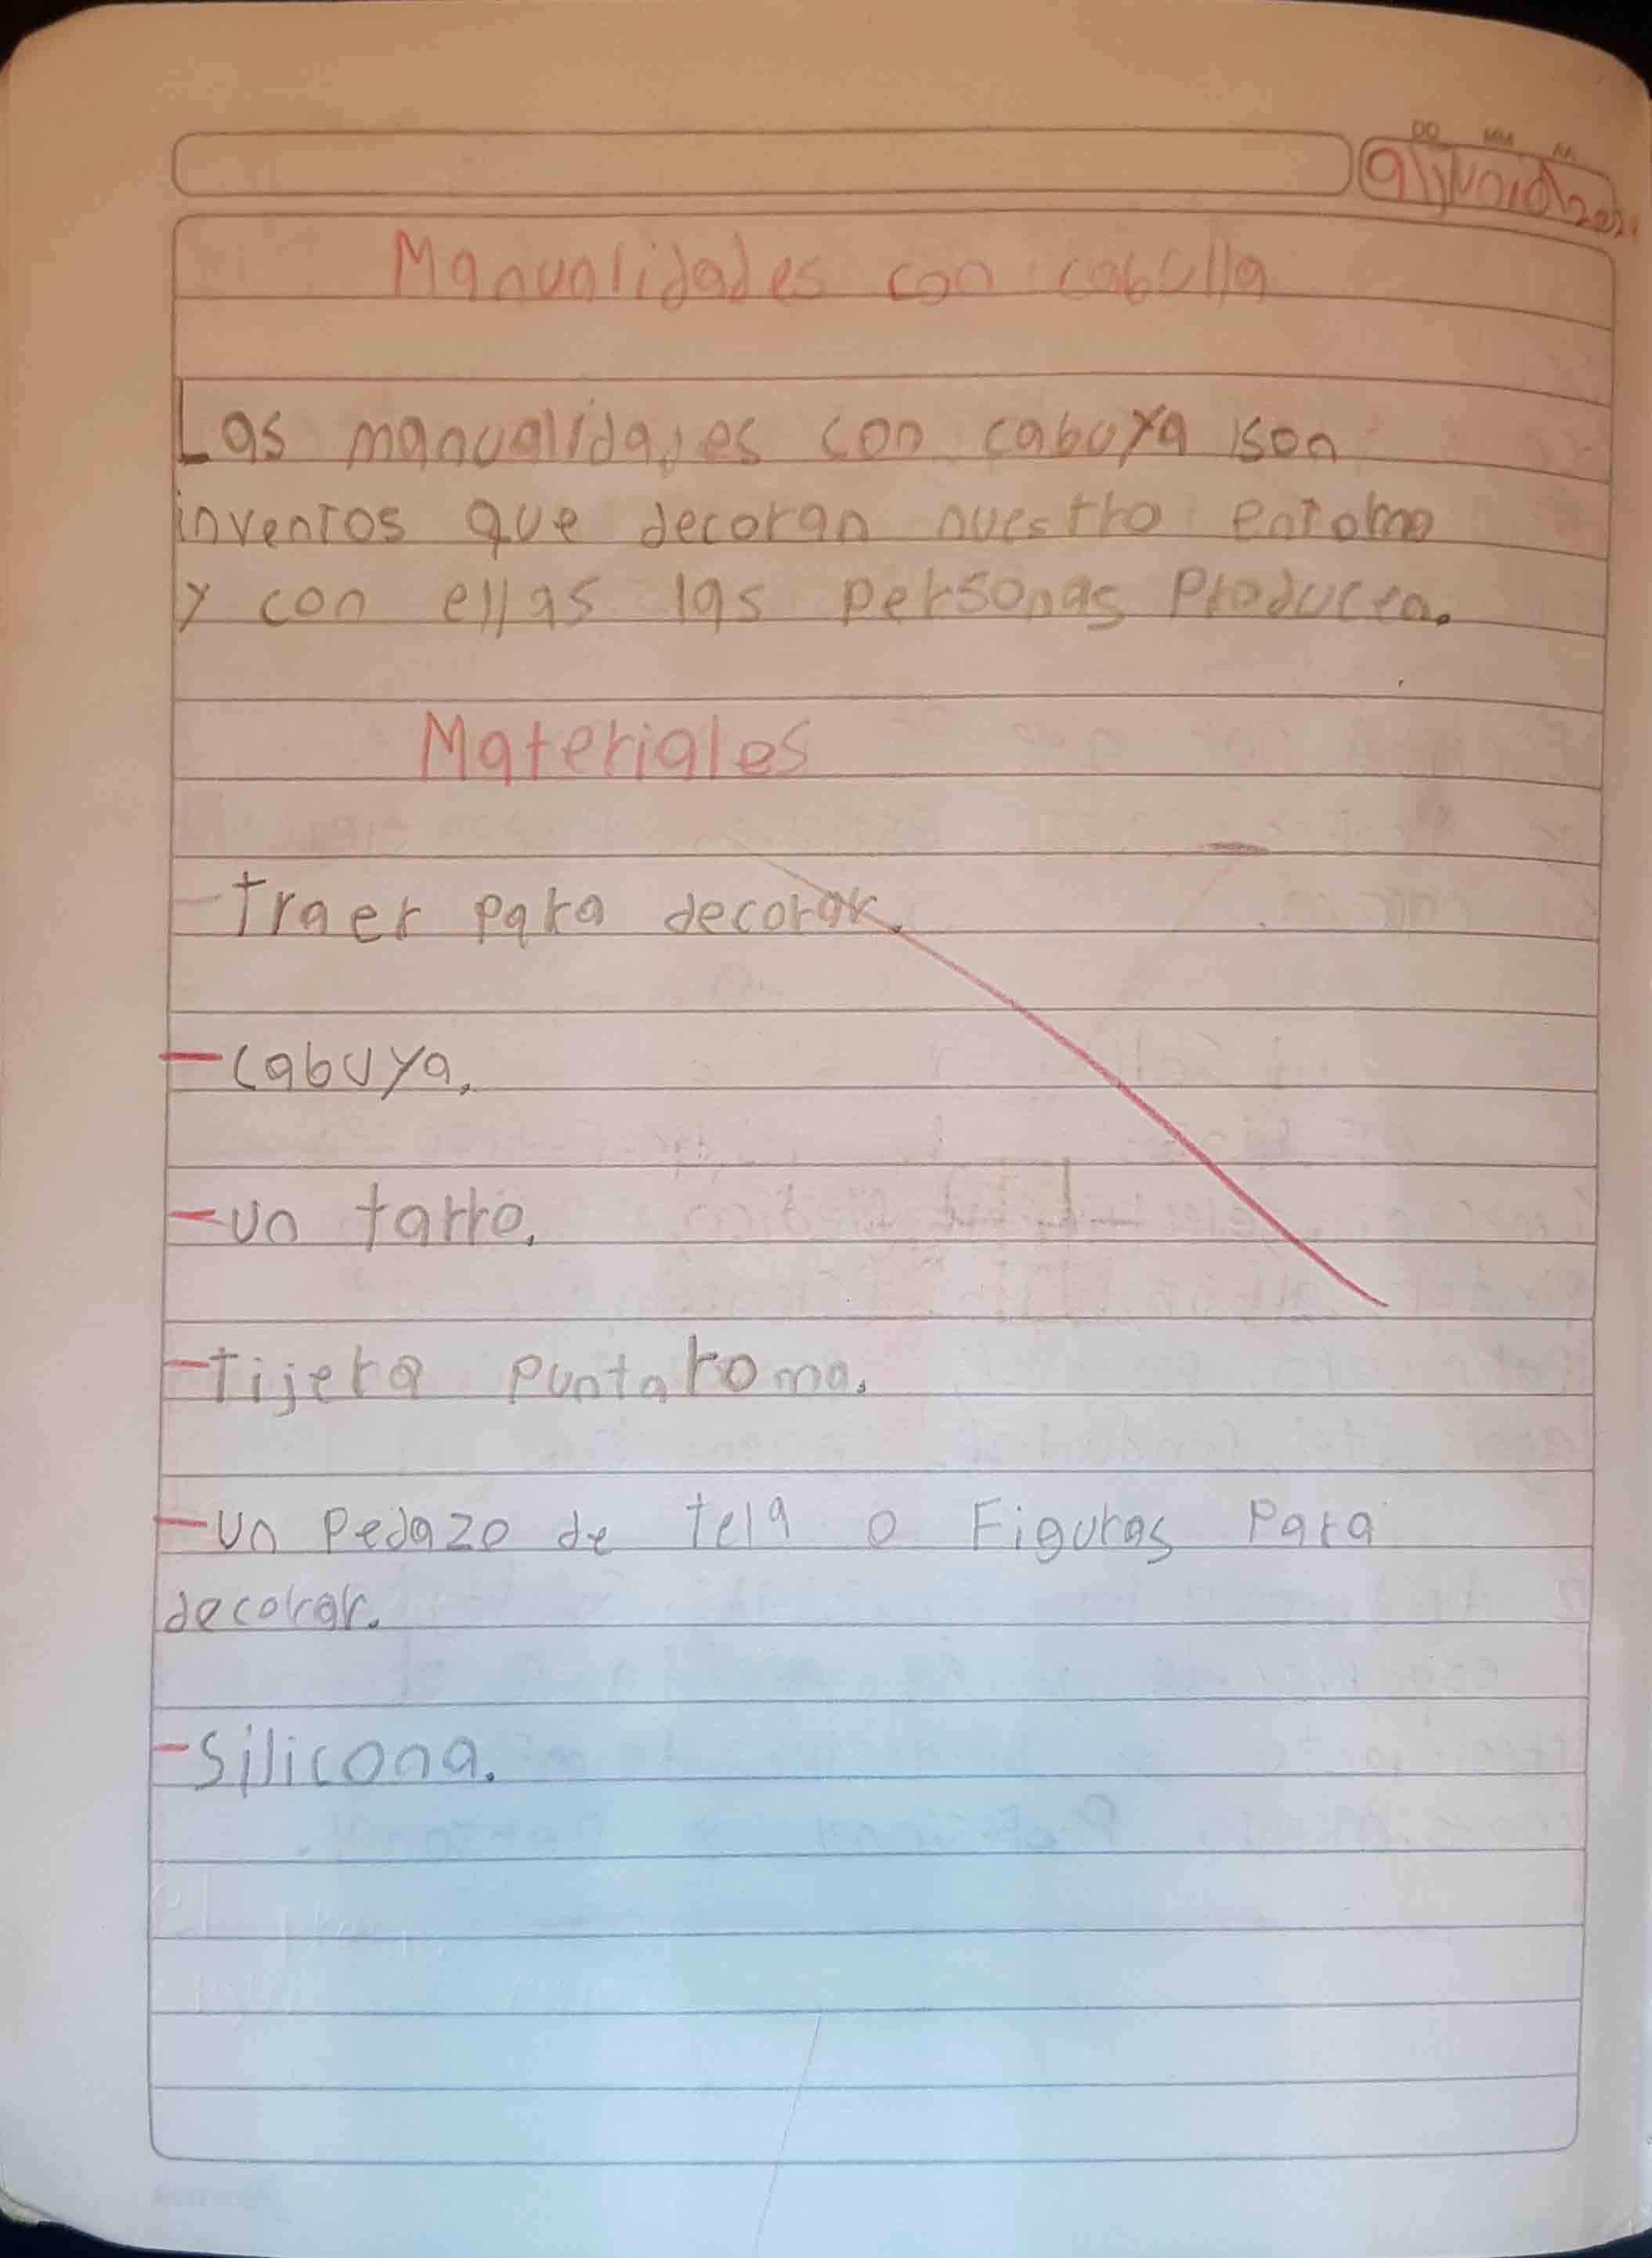 DD MM AA
Manualidades con cabulla
Las manualidades con cabuya son
inventos que decoran nuestro entorno
y con ellas las personas Producen.
Materiales
- Traer para decorar.
- cabuya.
- un tarro.
- Tijera punta roma.
- un Pedazo de tela o Figuras Para
decorar.
- Silicona.